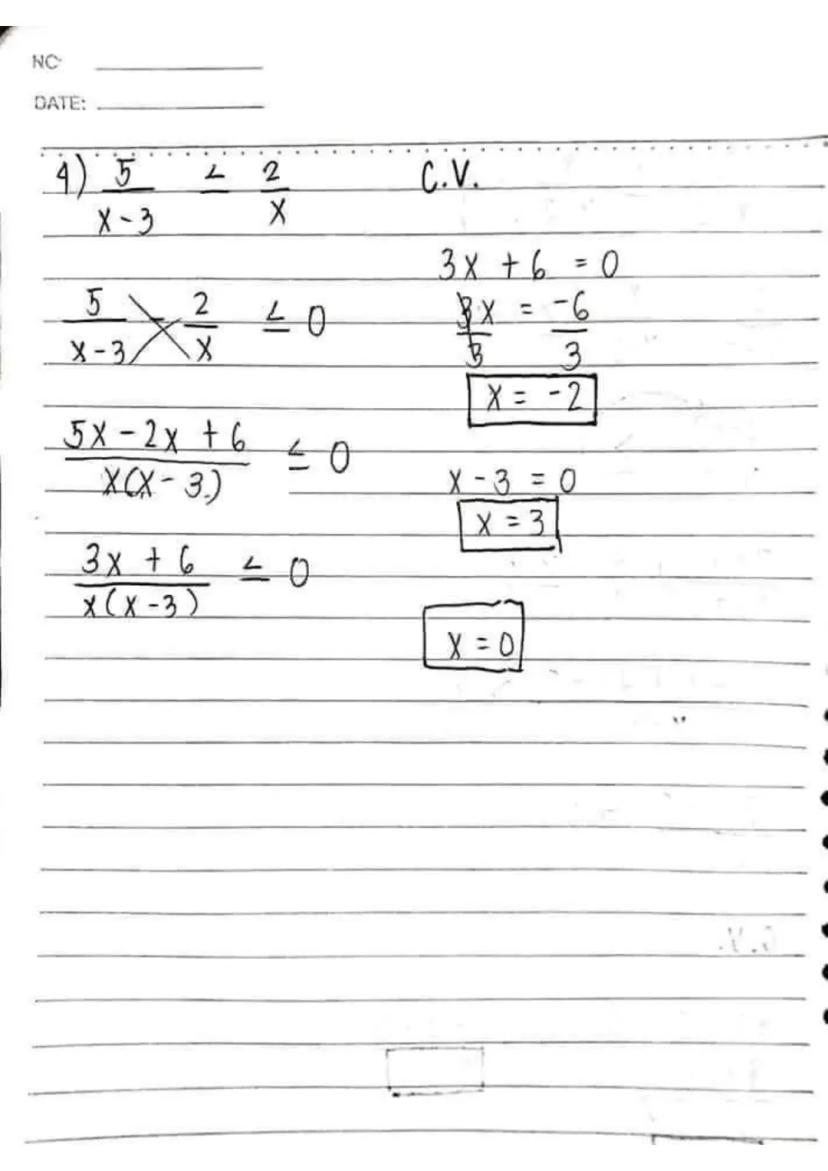 NO
DATE:
4) 5/(x-3) ≤ 2/x
C.V.
5/(x-3) - 2/x ≤ 0
(5x - 2x + 6)/(x(x-3)) ≤ 0
(3x + 6)/(x(x-3)) ≤ 0
3x + 6 = 0
3x/3 = -6/3
x = -2
x - 3 = 0
x = 3
x = 0